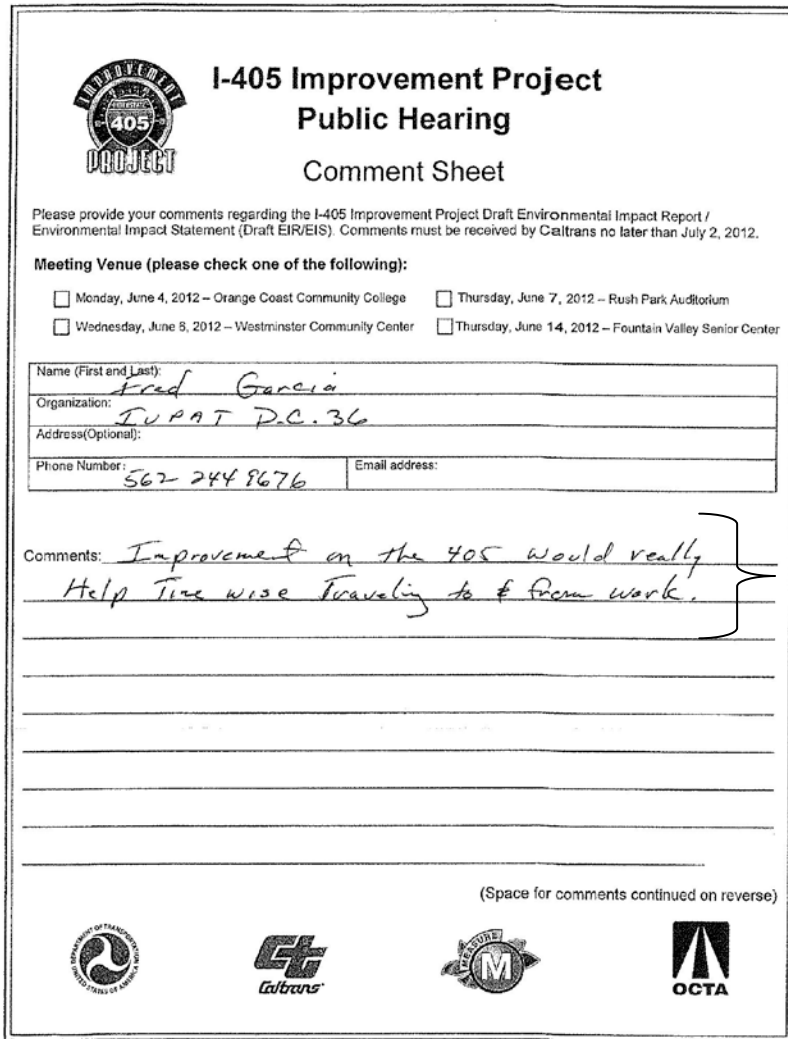 IMPROVEMENT
INTERSTATE
405
PROJECT
I-405 Improvement Project
Public Hearing
Comment Sheet
Please provide your comments regarding the I-405 Improvement Project Draft Environmental Impact Report /
Environmental Impact Statement (Draft EIR/EIS). Comments must be received by Caltrans no later than July 2, 2012.
Meeting Venue (please check one of the following):
Monday, June 4, 2012 – Orange Coast Community College
Thursday, June 7, 2012 – Rush Park Auditorium
Wednesday, June 6, 2012 – Westminster Community Center
Thursday, June 14, 2012 – Fountain Valley Senior Center
Name (First and Last): Fred Garcia
Organization: IUPAT D.C. 36
Address(Optional):
Phone Number: 562 244 9676
Email address:
Comments: Improvement on the 405 would really
Help Time wise Traveling to & from work.
(Space for comments continued on reverse)
DEPARTMENT OF TRANSPORTATION
UNITED STATES OF AMERICA
Caltrans
MEASURE
M
OCTA